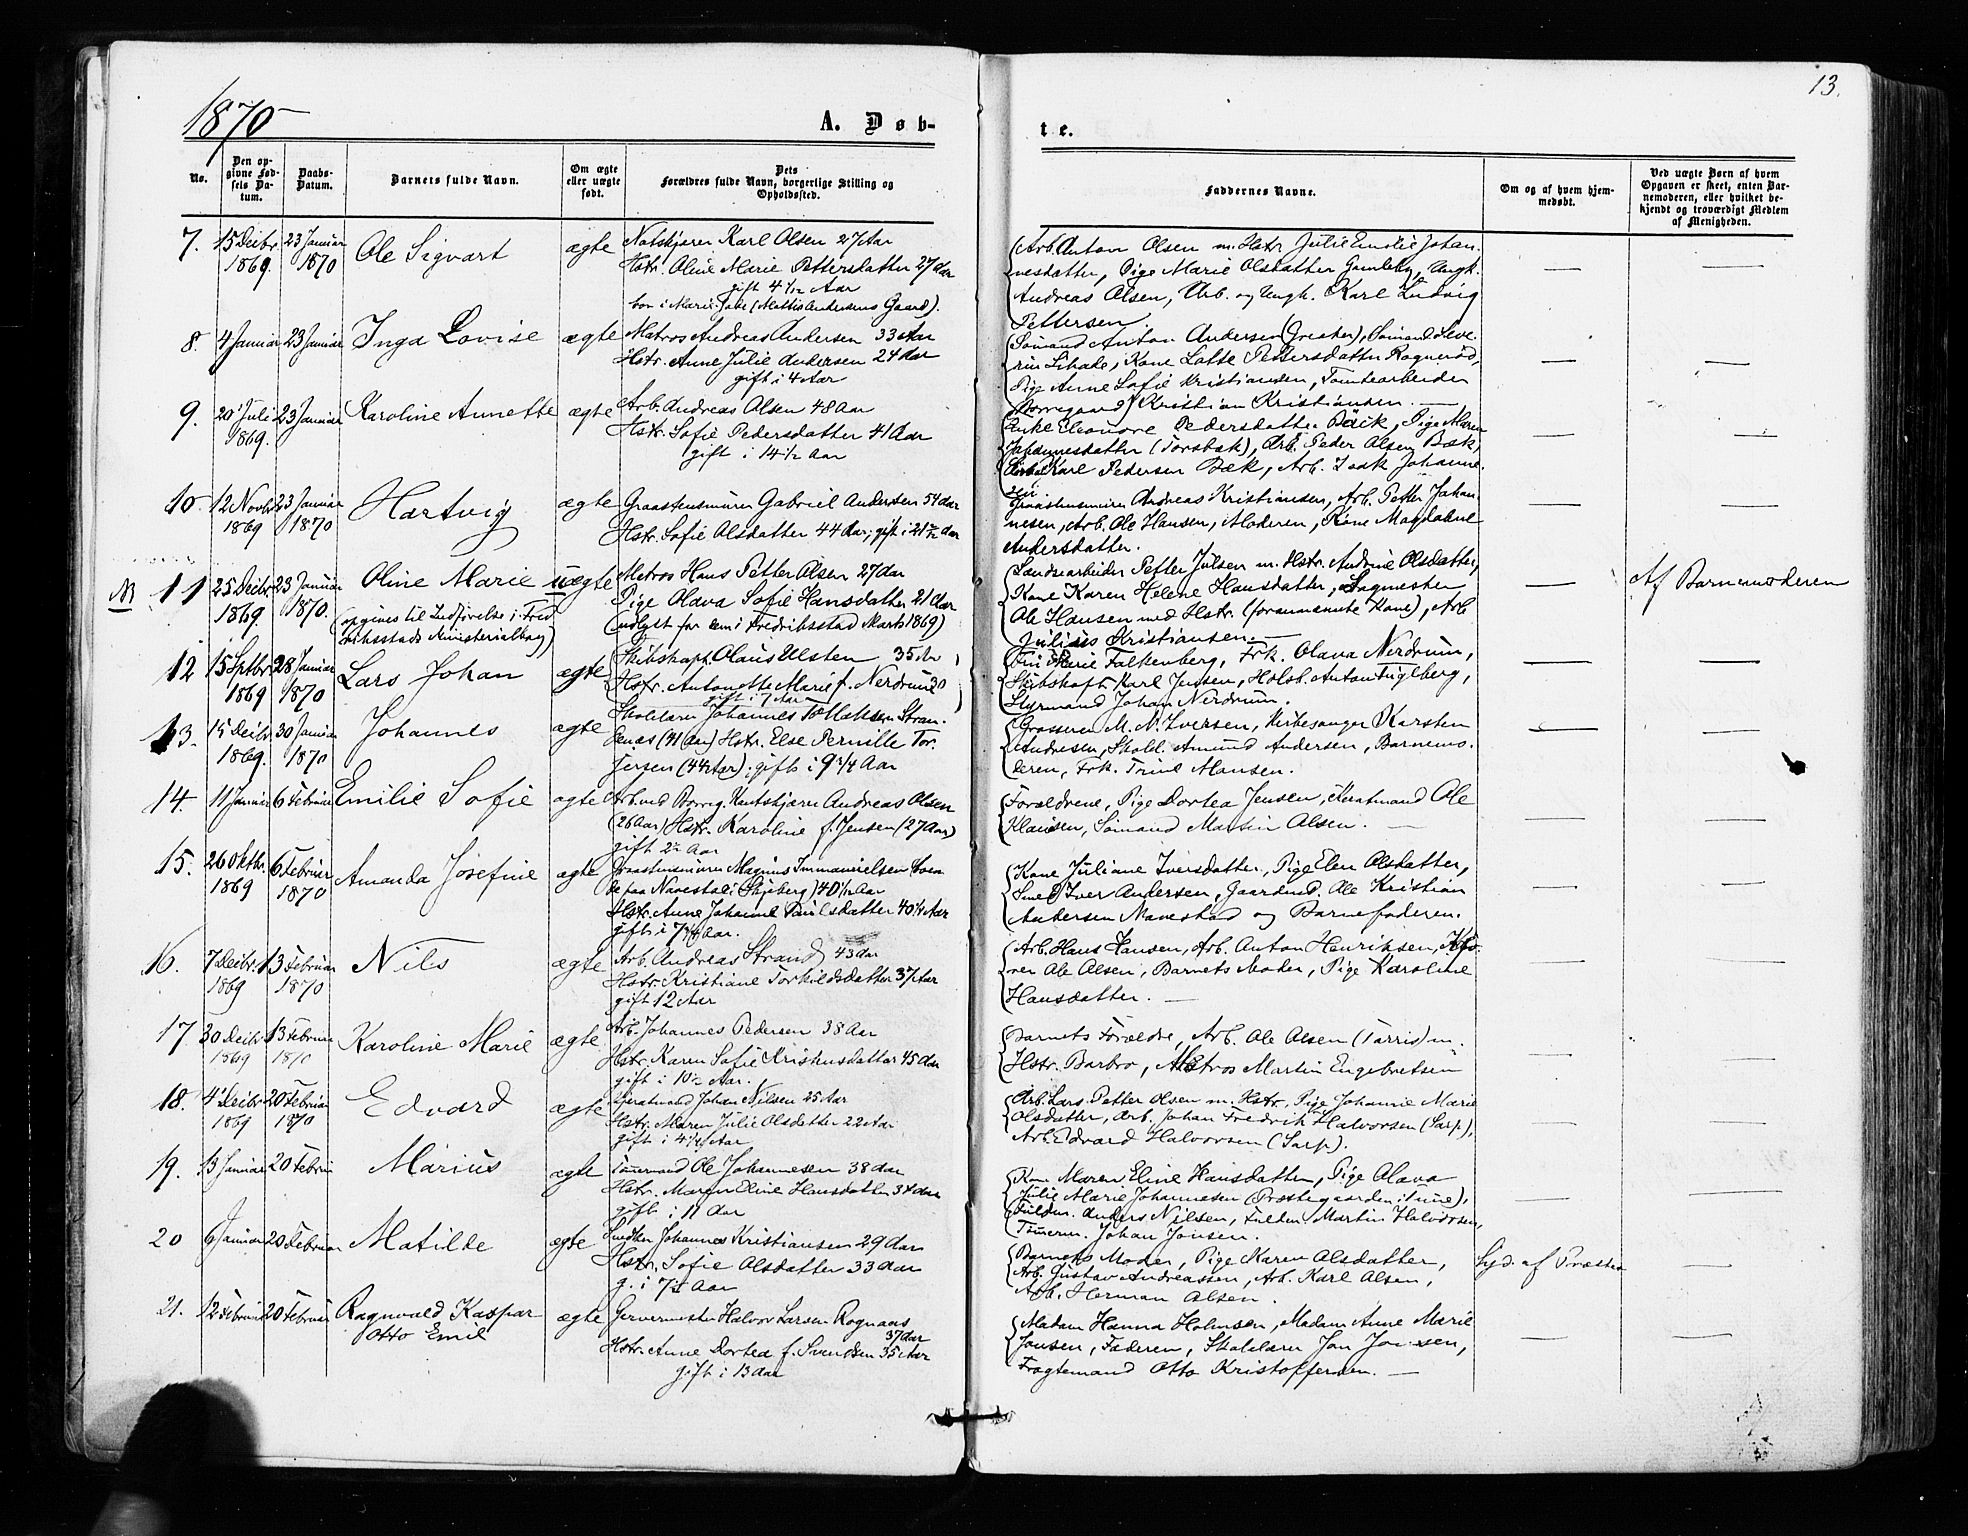 1870
A. Døb-
te.
13.
No.
Den op-
givne Fød-
sels Da-
tum.
Daabs-
Datum.
Barnets fulde Navn.
Om ægte
eller uægte
født.
Dets
Forældres fulde Navn, borgerlige Stilling og
Opholdssted.
Faddernes Navne.
Om og af hvem hjem-
medøbt.
Ved uægte Børn af hvem
Opgaven er skeet, enten Bar-
nemoderen, eller hvilket be-
kjendt og troværdigt Medlem
af Menigheden.
7. 15 Decbr. 1869. 23 Januar 1870 Ole Sigvart ægte
Karl Olsen 27 Aar
Hstr. Oline Marie Pettersdatter 27 Aar
gift 4 1/12 Aar
(Mattis Andersens Gaard).
Arb. Anton Olsen m. Hstr. Julie Emilie Johan-
nesdatter, Pige Marie Olsdatter Gamleby, Ungk.
Andreas Olsen, Arb. og Ungk. Karl Ludvig
Pettersen.
8. 4 Januar 23 Januar Inga Lovise ægte
Matros Andreas Andersen 33 Aar
Hstr. Anne Julie Andersen 24 Aar
gift i 4 Aar
Sømand Anton Andersen (Greaker), Sømand Seve-
rin Kone Lotte Pettersdatter Rognerød,
Pige Anne Sofie Kristiansen, Tomtearbeider
(Borregaard) Kristian Kristiansen. —
9. 20 Juli 1869. 23 Januar Karoline Annette ægte
Arb. Andreas Olsen 48 Aar
Hstr. Sofie Pedersdatter 41 Aar
gift i 14 1/2 Aar
Enke Eleonore Pedersdatter Bæk, Pige Maren
Johannesdatter (Torsbæk), Arb. Peder Olsen Bæk,
Karl Pedersen Bæk, Arb. Isak Johanne-
sen
10. 12 Novbr 1869 23 Januar 1870 Hartvig ægte
Graastensmurer Gabriel Andersen 54 Aar
Hstr. Sofie Olsdatter 44 Aar; gift i 21 1/2 Aar
Graastensmurer Andreas Kristiansen, Arb. Petter Johan-
nesen, Arb. Ole Hansen, Moderen, Kone Magdalene
Andersdatter.
11 25 Decbr 1869. 23 Januar 1870. Oline Marie uægte
(opgives til Indførelse i Fred-
rikstads Ministerialbog)
Matros Hans Petter Olsen 27 Aar
Pige Olava Sofie Hansdatter 21 Aar
(udlyst for dem i Fredriksstad Marts 1869)
Landsearbeider Petter Julsen m. Hstr. Andrine Olsdatter,
Kone Karen Helene Hansdatter, Sagmester
Ole Hansen med Hstr. (forannævnte Kone), Arb
Julius Kristiansen. —
Af Barnemoderen
12 15 Septbr 1869 28 Januar 1870 Lars Johan ægte
Skibskapt. Olaus Ulsten 35 Aar
Hstr. Antonette Marie f. Nerdrum 30
gift i 7 Aar
Fru Marie Falkenberg, Frk. Olava Nerdrum,
Skibskapt. Karl Jensen, Holsb. Anton Fuglberg,
Styrmand Johan Nerdrum.
13. 15 Decbr 1869. 30 Januar 1870 Johannes ægte
Skolelærer Johannes Stran-
denæs (41 Aar) Hstr. Else Pernille Tor-
jersen (44 Aar); gift i 9 3/4 Aar
Grosserer M. N. Iversen, Kirkesanger Karsten
Andresen, Skolel. Amund Andersen, Barnemo-
deren, Frk. Trine Hansen.
14. 11 Januar 6 Februar Emilie Sofie ægte
Arb. ved Borreg. Andreas Olsen
(26 Aar) Hstr. Karoline f. Jensen (27 Aar)
gift 2 1/2 Aar
Forældrene, Pige Dortea Jensen, Ole
Klausen, Sømand Martin Olsen. —
15. 26 Oktbr. 1869 6 Februar 1870 Amanda Josefine ægte
Graastensmurer Magnus Immanuelsen boen-
de paa Navestad i Skjeberg) 40 1/12 Aar
Hstr. Anne Johanne Paulsdatter 40 1/4 Aar
gift i 7 3/4 Aar.
Kone Juliane Iversdatter, Pige Elen Olsdatter,
Smed Iver Andersen, Gaardm. Ole Kristian
Andersen Navestad og Barnefaderen.
16. 7 Decbr. 1869 13 Februar 1870 Nils ægte
Arb. Andreas Strand 43 Aar
Hstr. Kristiane Torkildsdatter 37 Aar
gift 12 Aar
Arb. Hans Hansen, Arb. Anton Henriksen,
Ole Olsen, Barnets Moder, Pige Karoline
Hansdatter. —
17. 30 Decbr 1869 13 Februar 1870 Karoline Marie ægte
Arb. Johannes Pedersen 38 Aar
Hstr. Karen Sofie Kristensdatter 45 Aar
gift i 10 1/2 Aar.
Barnets Forældre, Arb. Ole Olsen (Tarris) m.
Hstr. Barbro, Matros Martin Engebretsen
18. 4 Decbr 1869 20 Februar 1870 Edvard ægte
Johan Nilsen 25 Aar
Hstr. Maren Julie Olsdatter 22 Aar
gift i 4 1/4 Aar
Arb. Lars Petter Olsen m. Hstr., Pige Johanne Marie
Olsdatter, Arb. Johan Fredrik Halvorsen (Sarp),
Arb. Edvard Halvorsen (Sarp).
19. 13 Januar 20 Februar Marius ægte
Tømmermand Ole Johannesen 38 Aar
Hstr. Maren Eline Hansdatter 34 Aar
gift i 11 Aar
Kone Maren Eline Hansdatter, Pige Olava
Julie Marie Johannesen (Præstegaarden i Tune),
Anders Nilsen, Martin Halvorsen,
Tømmerm. Johan Jonsen.
20 6 Januar 20 Februar Matilde ægte
Snedker Johannes Kristiansen 29 Aar
Hstr. Sofie Olsdatter 33 Aar
g. i 7 1/2 Aar
Barnets Moder, Pige Karen Olsdatter,
Arb. Gustav Andreassen, Arb. Karl Olsen,
Arb. Herman Olsen.
21. 12 Februar 20 Februar Ragnvald Kaspar
Otto Emil ægte
Garvermester Halvor Larsen Rognaas
37 Aar
Hstr. Anne Dortea f. Svendsen 35 Aar
gift i 13 Aar
Madam Hanna Holmsen, Madam Anne Marie
Jonsen, Faderen, Skolelærer Jon
Fragtemand Otto Kristoffersen. —